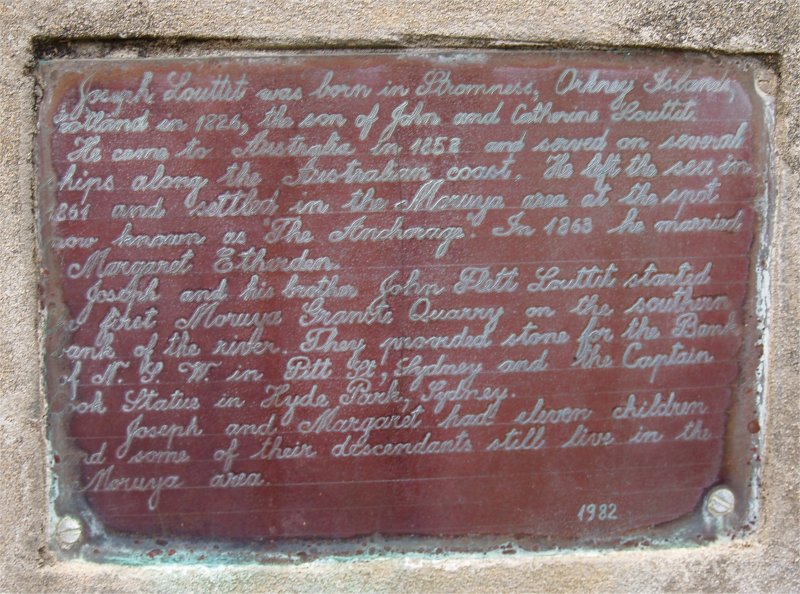 Joseph Louttet was born in Stromness, Orkney Islands,
Scotland in 1826, the son of John and Catherine Louttet.
He came to Australia in 1858 and served on several
ships along the Australian coast. He left the sea in
1861 and settled in the Moruya area at the spot
now known as The Anchorage. In 1863 he married
Margaret Etherden.
Joseph and his brother John Flett Louttit started
first Moruya Granite Quarry on the southern
bank of the river. They provided stone for the Bank
of N. S. W. in Pitt St, Sydney and the Captain
Cook Statue in Hyde Park, Sydney.
Joseph and Margaret had eleven children
and some of their descendants still live in the
Moruya area.
1982